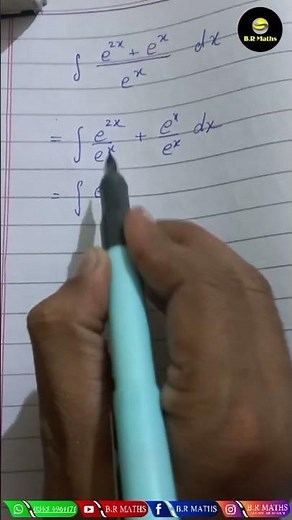 B.R Maths
∫ (e^{2x} + e^x)/e^x dx
= ∫ e^{2x}/e^x + e^x/e^x dx
= ∫ e
B.R MATHS
B.R MATHS
B.R MATHS